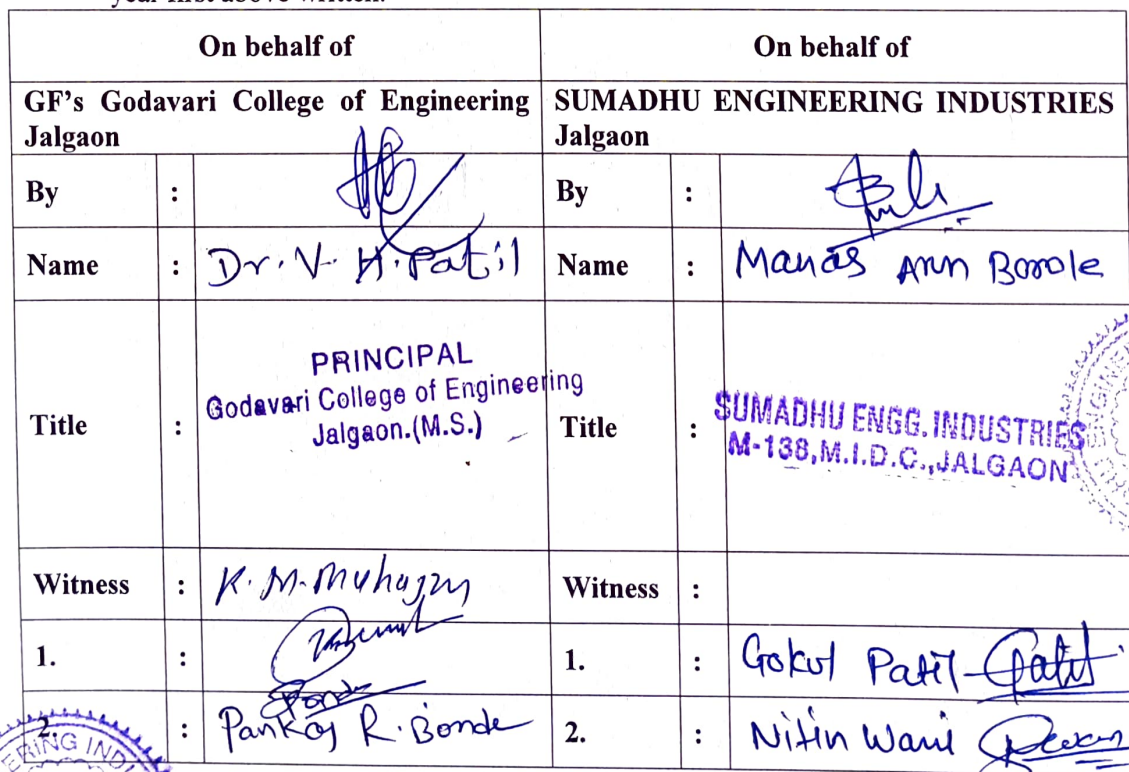 year first above written.
On behalf of On behalf of
GF's Godavari College of Engineering Jalgaon SUMADHU ENGINEERING INDUSTRIES Jalgaon
By : By :
Name : Dr. V. H. Patil Name : Manas Arun Borole
PRINCIPAL
Godavari College of Engineering
Jalgaon.(M.S.)
Title : Title : SUMADHU ENGG. INDUSTRIES
M-138, M.I.D.C., JALGAON
Witness : K. M. Mahajan Witness :
1. : 1. : Gokul Patil Patil
Bonde
2. : Pankaj R. Bonde 2. : Nitin Wani
ERING IND